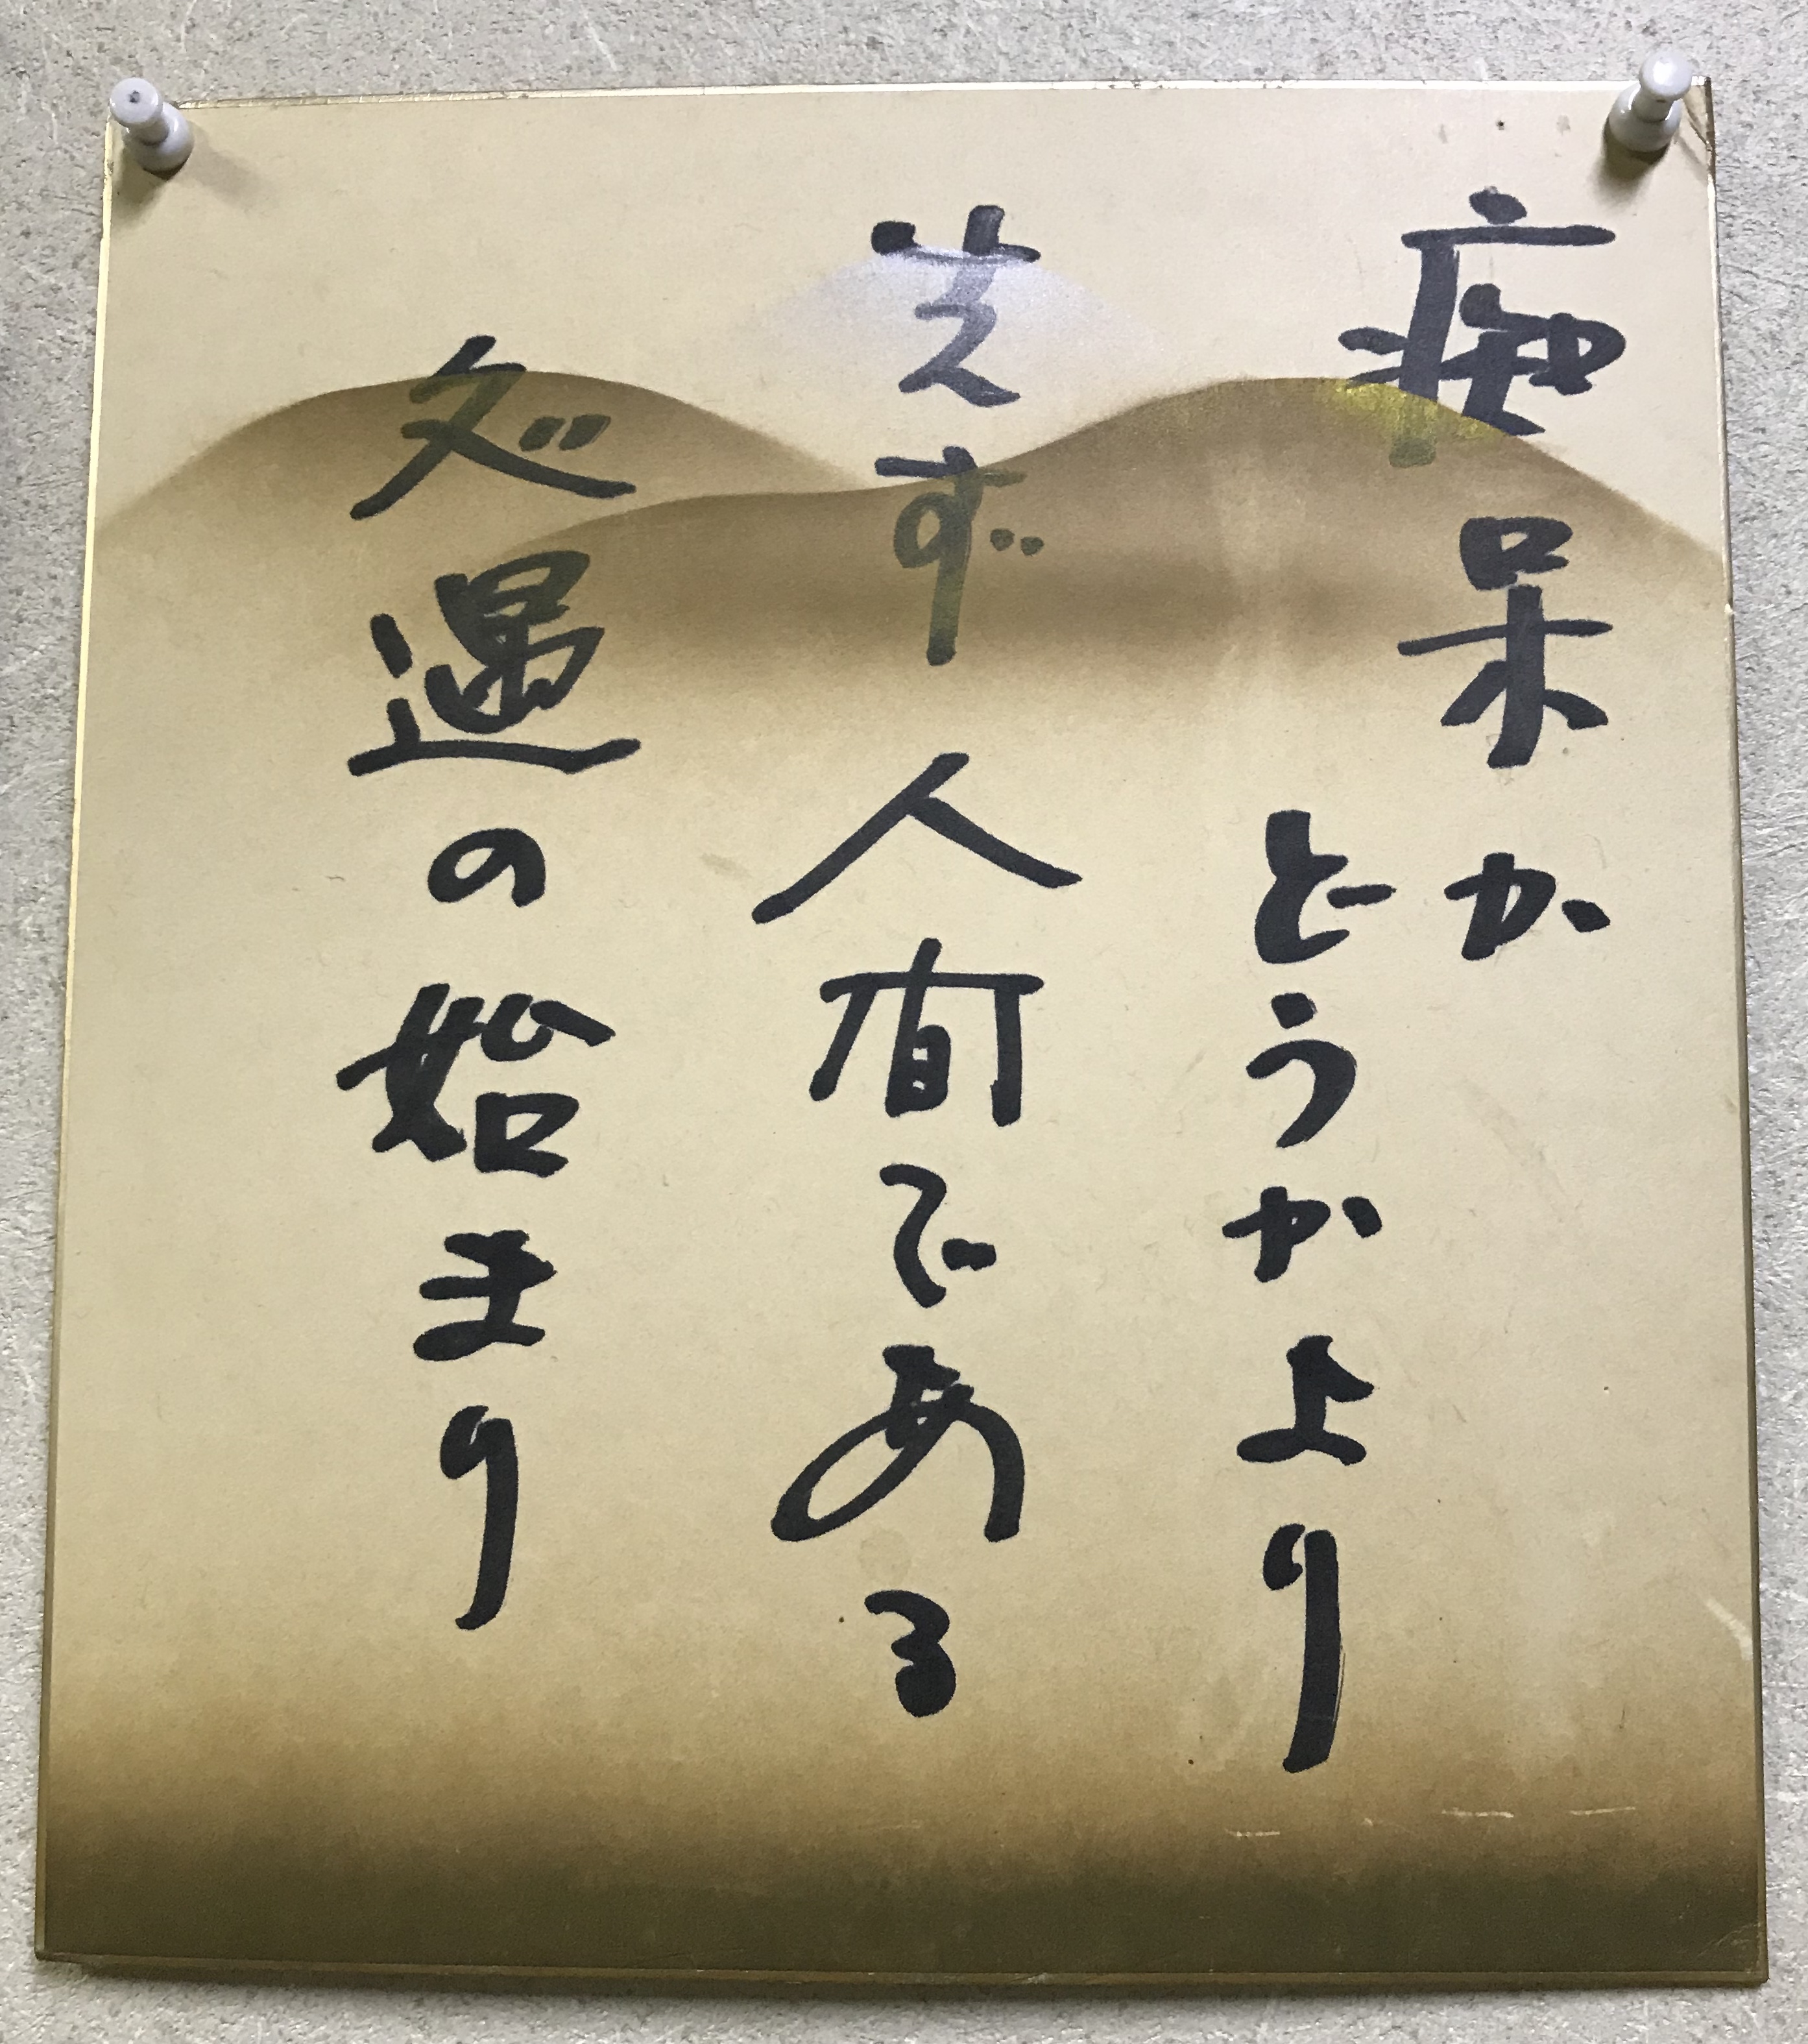 痴呆か
どうかより
先ず人間である
処遇の始まり